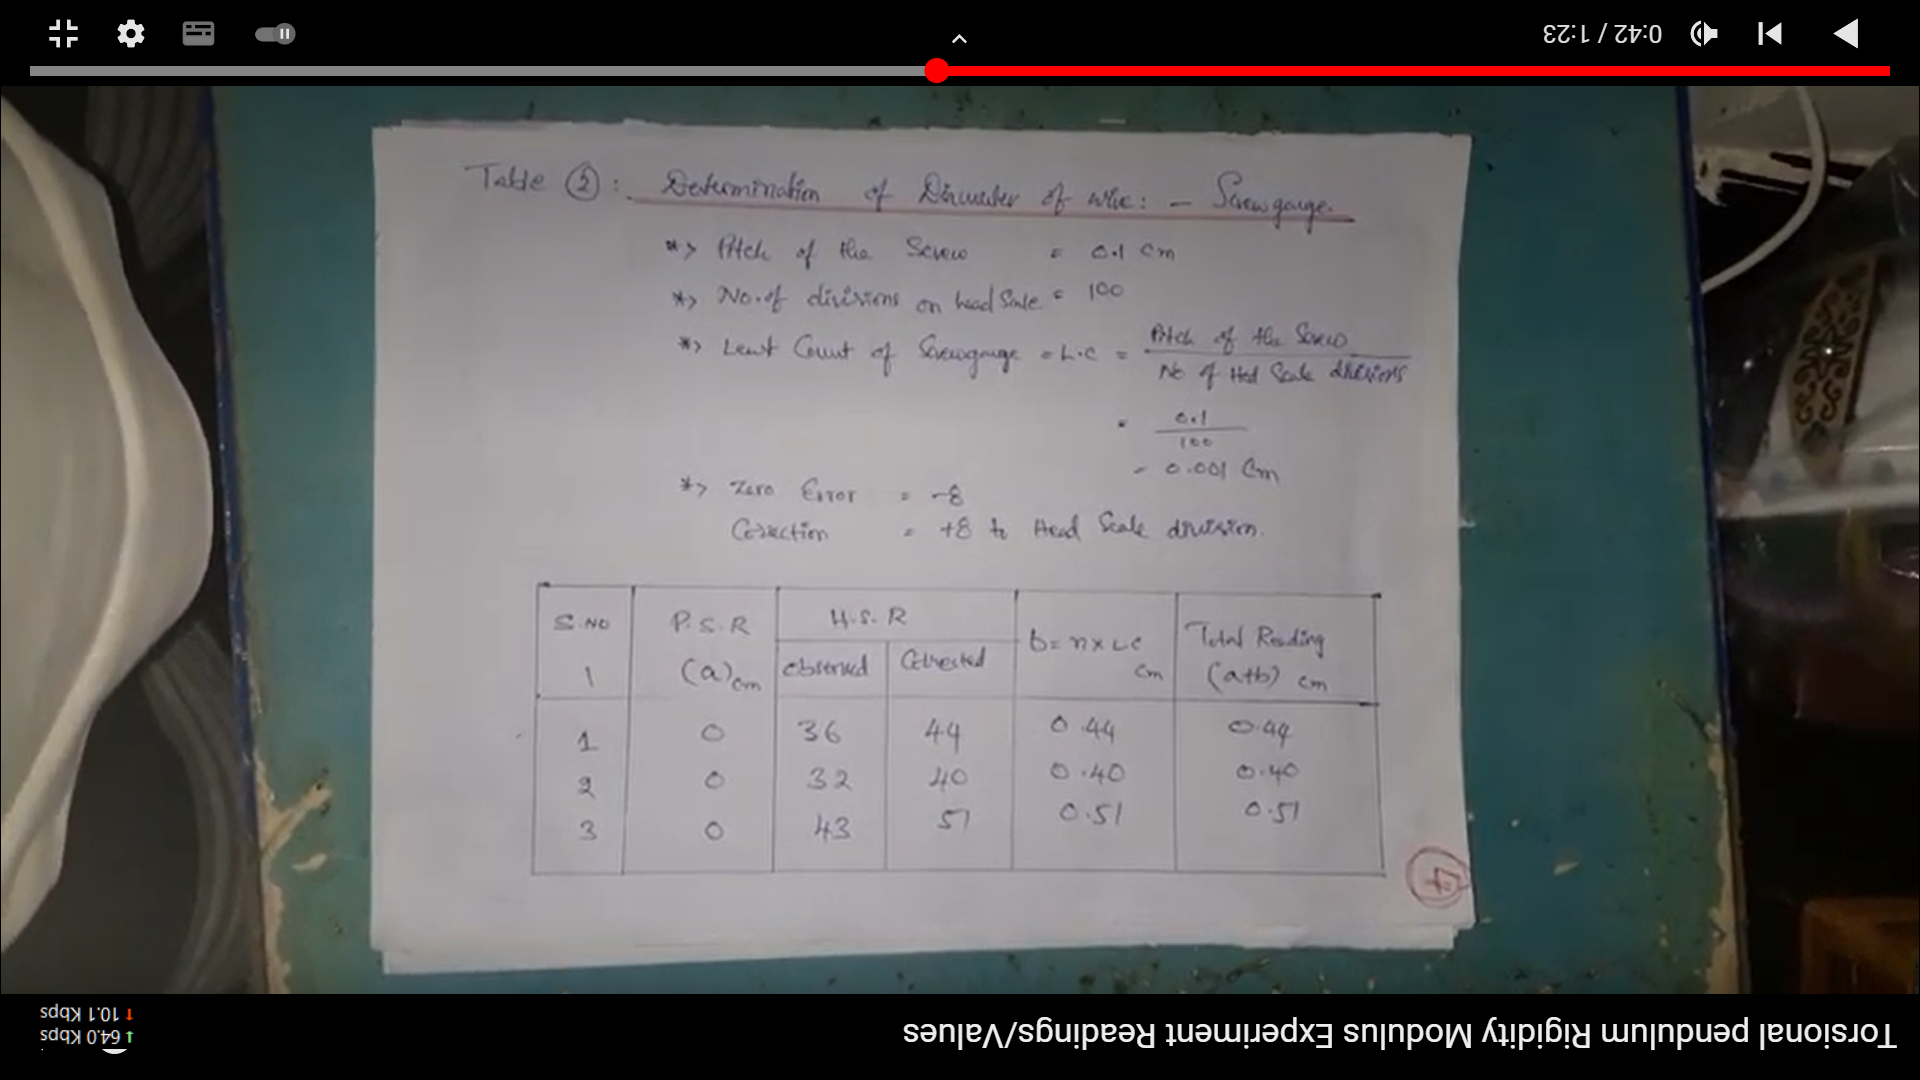 0:42 / 1:23
Table ② : Determination of Diameter of wire: - Screw gauge.
*> Pitch of the Screw = 0.1 cm
*> No. of divisions on head Scale = 100
*> Least Count of Screwgauge = L.C = Pitch of the Screw
No of Head Scale divisions
= 0.1
100
= 0.001 Cm
*> Zero Error = -8
Correction = +8 to Head Scale division.
S.NO P.S.R H.S.R b= n x LC Total Reading
1 (a) cm observed Corrected cm (a+b) cm
1 0 36 44 0.44 0.44
2 0 32 40 0.40 0.40
3 0 43 51 0.51 0.51
Torsional pendulum Rigidity Modulus Experiment Readings/Values
↓ 64.0 Kbps
↑ 10.1 Kbps